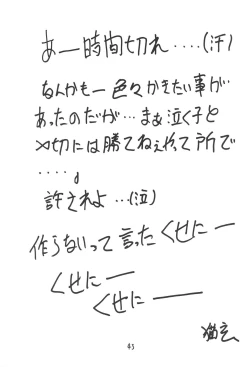 あー時間切れ････(汗)
なんかもー色々かきたい事が
あったのだが…まぁ泣く子と
〆切には勝てねぇやって所で
････。
許されよ…(泣)
作らないって言ったくせにー
くせにー
くせにー
45